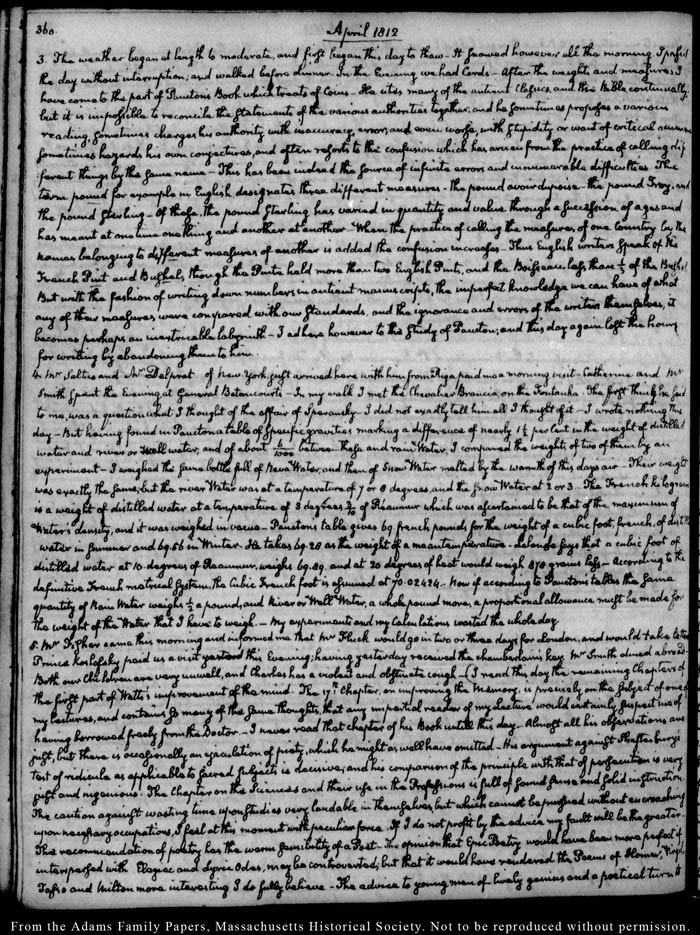 360.
April 1812
3. The weather began at length to moderate, and first began this day to thaw. It snowed however all the morning. I passed
the day without interruption, and walked before dinner. In the Evening we had Cards. After the weights and measures I
have come to the part of Paucton's Book which treats of Coins. He cites many of the antient Classics, and the Bible continually;
but it is impossible to reconcile the Statements of the various authorities together, and he sometimes proposes a various
reading, sometimes charges his authority with inaccuracy, error, and even worse, with stupidity or want of critical
sometimes hazards his own conjectures, and often resorts to the confusion which has arisen from the practice of calling dif-
ferent things by the same name. This has been indeed the source of infinite errors and innumerable difficulties. The
term pound for example in English designates three different measures. The pound avoirdupoise, the pound Troy, and
the pound Sterling. Of these, the pound Sterling has varied in quantity and value through a succession of ages and
has meant at one time one thing and another at another. When the practice of calling the measures of one Country by the
names belonging to different measures of another is added the confusion increases. Thus English writers speak of the
French Pint and Bushel, though the Pinte held more than two English Pints, and the Boisseau less than ⅓ of the Bushel.
But with the fashion of writing down numbers in antient manuscripts, the imperfect knowledge we can have of what
any of their measures were compared with our Standards, and the ignorance and errors of the writers themselves, it
becomes perhaps an inextricable labyrinth. I adhere however to the Study of Paucton; and this day again lost the hours
for writing by abandoning them to him.
4. Mr Saltus and Mr Delprat of New York just arrived here with him from Riga paid me a morning visit. Catherine and Mr
Smith spent the Evening at General Betancourt's. In my walk I met the Chevalier Brancia on the Fontanka. The first thing he said
to me, was a question what I thought of the affair of Speransky. I did not exactly tell him all I thought of it. I wrote nothing this
day. But having found in Paucton a table of Specific gravities marking a difference of nearly 1½ per cent in the weight of distilled
water and river or Well water, and of about between these and rain Water, I compared the weight of two of them by an
experiment. I weighed the same bottle full of Neva Water, and then of Snow Water melted by the warmth of this day's air. Their weight
was exactly the same, but the river Water was at a temperature of 7 or 8 degrees, and the Snow Water at 2 or 3. The French kilogram
is a weight of distilled water at a temperature of 3 degrees of Reaumur which was ascertained to be that of the maximum of
Water's density, and it was weighed in vacuo. Paucton's table gives 69 french pounds for the weight of a cubic foot, french, of dist'd
water in Summer and 69.56 in Winter. He takes 69.28 as the weight of a mean temperature. Lalande says that a cubic foot of
distilled water at 10 degrees of Reaumur, weighs 69.89, and at 20 degrees of heat would weigh 870 grains less. According to the
definitive French metrical System, the Cubic French foot is assumed at 70.02424. Now if according to Paucton's tables the same
quantity of Rain Water weighs ½ a pound, and River or Well Water, a whole pound more, a proportional allowance must be made for
the weight of the Water that I have to weigh. My experiments and my Calculations wasted the whole day.
5. Mr Fisher came this morning and informed me that Mr Flick would go in two or three days for London, and would take letters.
Prince Koslofsky paid us a visit this Evening; having yesterday received the chamberlain's key. Mr Smith dined abroad.
Both our Children are very unwell, and Charles has a violent and obstinate cough. I read this day the remaining Chapters of
the first part of Watts's improvement of the mind. The 17th Chapter, on improving the Memory, is precisely on the subject of one of
my lectures, and contains so many of the same thoughts, that any impartial reader of my Lecture would certainly suspect me of
having borrowed freely from the Doctor. I never read that chapter of his Book untill this day. Almost all his observations are
just, but there is occasionally an ejaculation of piety, which he might as well have omitted. His argument against Shaftesbury's
test of ridicule as applicable to sacred subjects is decisive; and his comparison of the principle with that of persecution is very
just and ingenious. The Chapter on the Sciences and their use in the Professions is full of sound sense and solid instruction.
The caution against wasting time upon Studies very laudable in themselves, but which cannot be pursued without encroaching
upon necessary occupations, I feel at this moment with peculiar force. If I do not profit by the advice my fault will be the greater.
The recommendation of poetry has the warm sensibility of a Poet. The opinion that Epic Poetry would have been more perfect if
interspersed with Elegiac and Lyric Odes, may be controverted, but that it would have rendered the Poems of Homer, Virgil,
Tasso and Milton more interesting I do fully believe. The advice to young men of lively genius and a poetical turn to
From the Adams Family Papers, Massachusetts Historical Society. Not to be reproduced without permission.